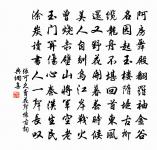 阿房舞殿翻羅袖金谷
名園起玉樓隋堤古柳
纜龍舟不堪回首東風
還又野花開暮春時候
美人自刎烏江岸戰火
曾燒赤壁山將軍空老
玉門關傷心秦漢生民
塗炭讀書人一聲長嘆
張可久賣花聲懷古